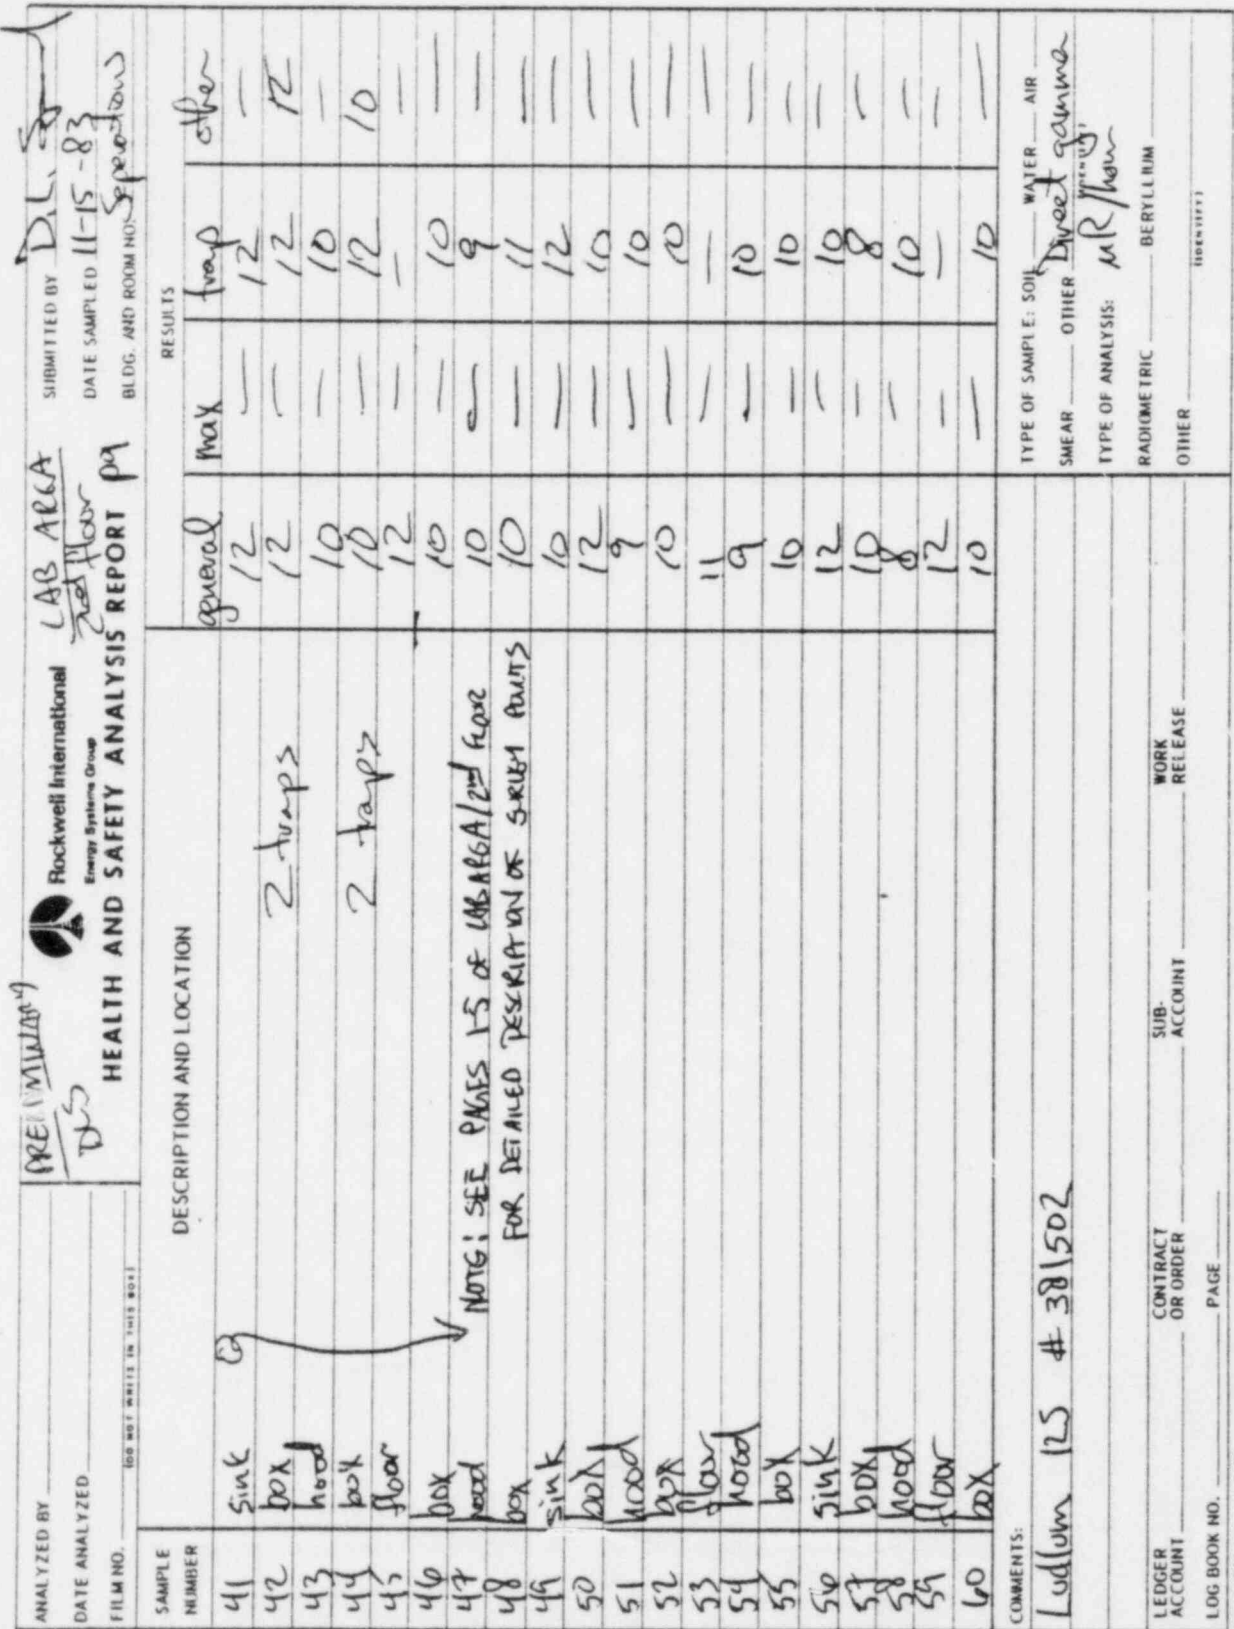 ANALYZED BY
DATE ANALYZED
FILM NO.
(DO NOT WRITE IN THIS BOX)
PRELIMINARY
DLS
Rockwell International
Energy Systems Group
HEALTH AND SAFETY ANALYSIS REPORT pg
LAB AREA
2nd floor
SUBMITTED BY D.L.
DATE SAMPLED 11-15-83
BLDG. AND ROOM NO. Separations
SAMPLE NUMBER DESCRIPTION AND LOCATION RESULTS
general max trap other
41 sink 12 — 12 —
42 box 2 traps 12 — 12 12
43 hood 10 — 10 —
44 box 2 traps 10 — 12 10
45 floor 12 — — —
46 box 10 — 10 —
47 hood NOTE: SEE PAGES 1-5 OF LAB AREA/2nd FLOOR 10 — 9 —
48 box FOR DETAILED DESCRIPTION OF SURVEY POINTS 10 — 11 —
49 sink 10 — 12 —
50 box 12 — 10 —
51 hood 9 — 10 —
52 box 10 — 10 —
53 floor 11 — — —
54 hood 9 — 10 —
55 box 10 — 10 —
56 sink 12 — 10 —
57 box 10 — 8 —
58 hood 8 — 10 —
59 floor 12 — — —
60 box 10 — 10 —
COMMENTS:
Ludlum 12S # 381502
TYPE OF SAMPLE: SOIL WATER AIR
SMEAR OTHER Direct gamma
(IDENTIFY)
TYPE OF ANALYSIS: µR/hour
RADIOMETRIC BERYLLIUM
OTHER
(IDENTIFY)
LEDGER ACCOUNT CONTRACT OR ORDER SUB-ACCOUNT WORK RELEASE
LOG BOOK NO. PAGE